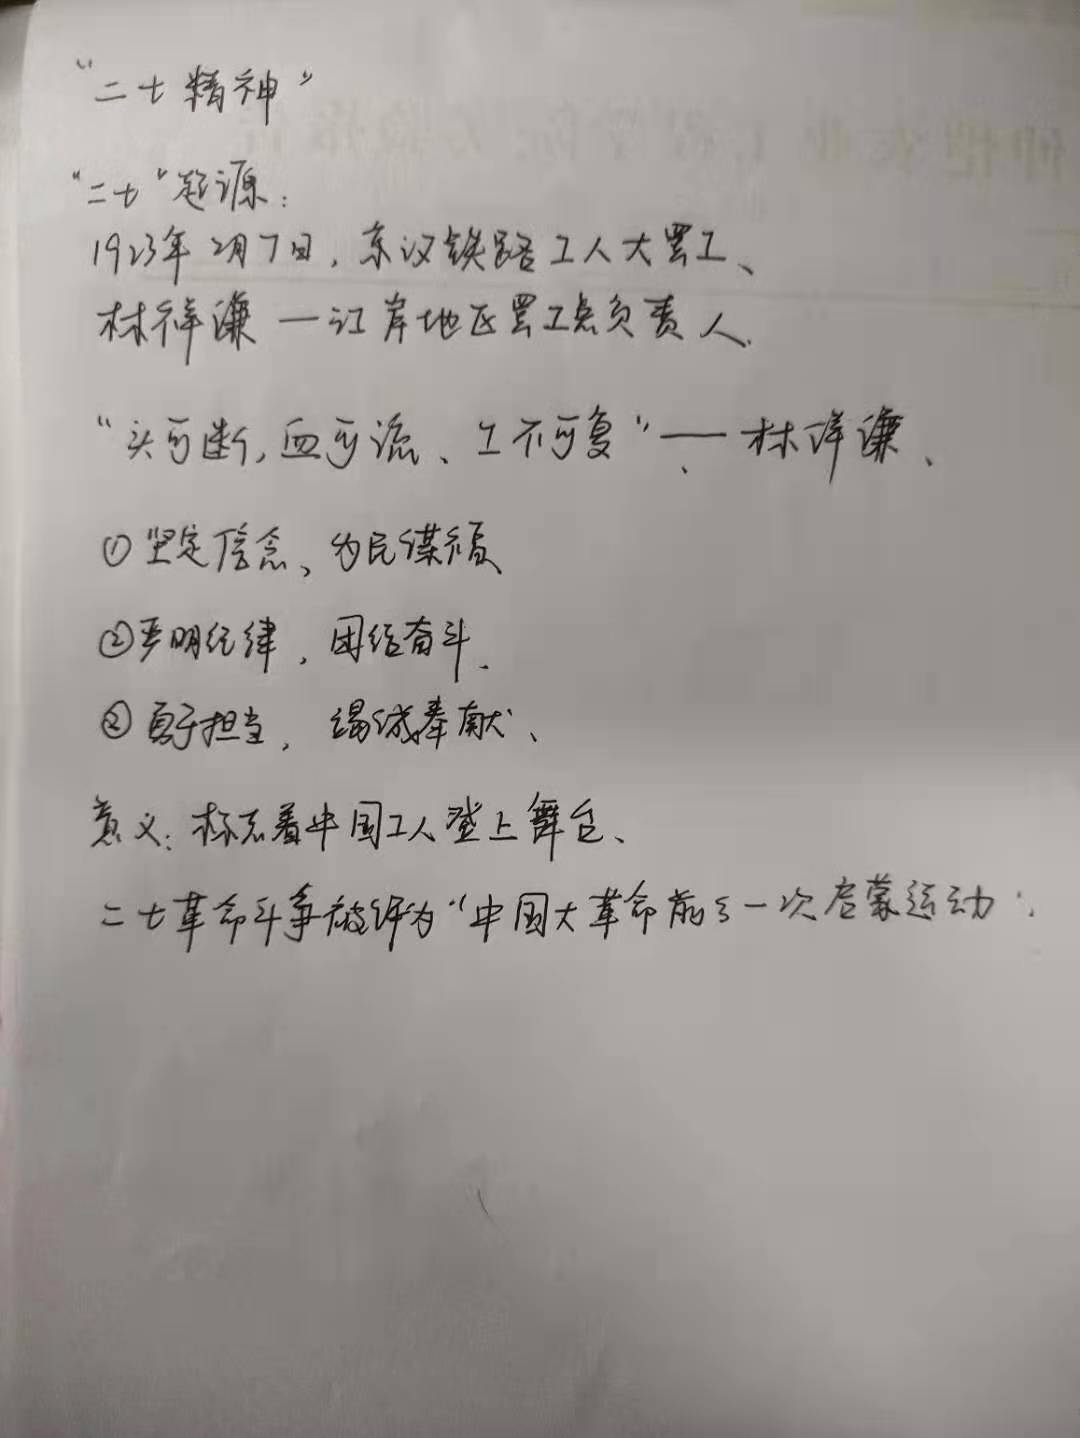 “二七精神”
“二七”起源：
1923年2月7日，京汉铁路工人大罢工、
林祥谦—江岸地区罢工总负责人.
“头可断，血可流、工不可复”——林祥谦、
①坚定信念、为民谋福、
②严明纪律，团结奋斗.
②勇于担当，竭诚奉献、
意义：标志着中国工人登上舞台、
二七革命斗争被评为“中国大革命前的一次启蒙运动”.